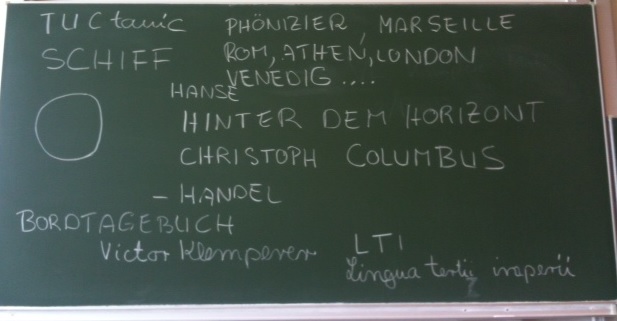 TUCtanic PHÖNIZIER, MARSEILLE
SCHIFF ROM, ATHEN, LONDON
VENEDIG ....
HANSE
HINTER DEM HORIZONT
CHRISTOPH COLUMBUS
– HANDEL
BORDTAGEBUCH
Victor Klemperer LTI
Lingua tertii imperii